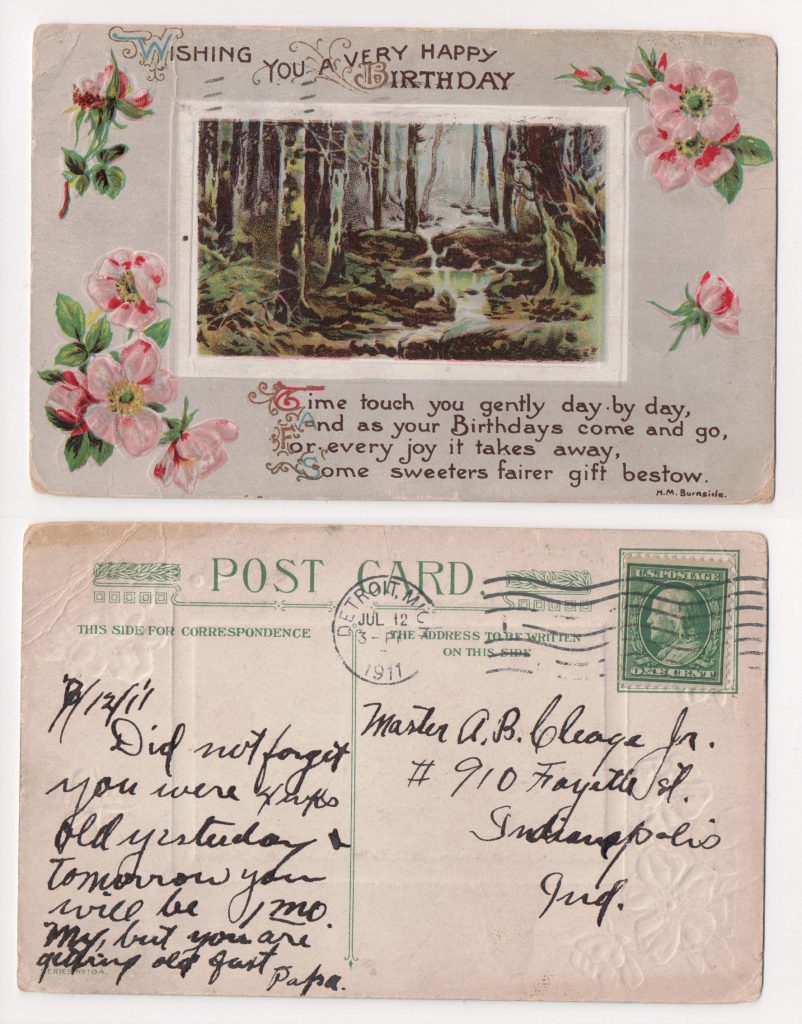 WISHING YOU A VERY HAPPY BIRTHDAY
Time touch you gently day by day,
And as your Birthdays come and go,
For every joy it takes away,
Some sweeters fairer gift bestow.
H.M. Burnside.
POST CARD.
THIS SIDE FOR CORRESPONDENCE
THE ADDRESS TO BE WRITTEN
ON THIS SIDE
DETROIT, MICH
JUL 12
3-PM
1911
U.S. POSTAGE
ONE CENT
7/12/11
Did not forget
you were 4 wks
old yesterday &
tomorrow you
will be 1 mo.
My, but you are
getting old fast
Papa.
Master A.B. Cleage Jr.
# 910 Fayette St.
Indianapolis
Ind.
SERIES No 10A.